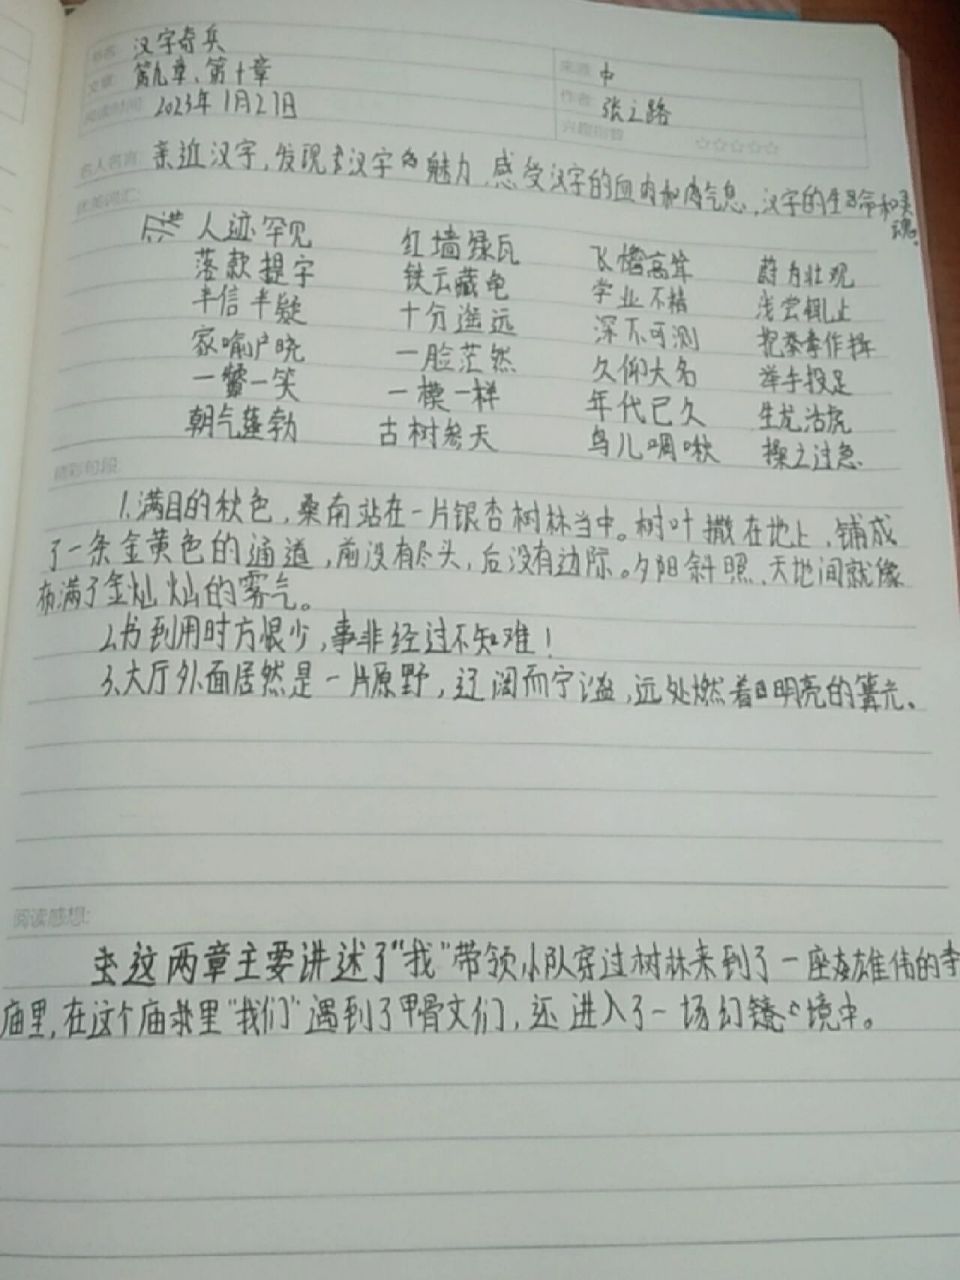 书名: 汉字奇兵 来源: 中
文章: 第九章、第十章 作者: 张之路
阅读时间: 2023年1月27日 兴趣指曽 ☆☆☆☆☆
名人名言: 亲近汉字,发现汉字的魅力、感受汉字的血肉和气息,汉字的生命和灵
魂。
优美词汇:
人迹罕见 红墙绿瓦 飞檐高耸 蔚为壮观
落款提字 铁云藏龟 学业不精 浅尝辄止
半信半疑 十分遥远 深不可测 把拳作揖
家喻户晓 一脸茫然 久仰大名 举手投足
一颦一笑 一模一样 年代已久 生龙活虎
朝气蓬勃 古树参天 鸟儿啁啾 操之过急
精彩句段:
1.满目的秋色,桑南站在一片银杏树林当中。树叶撒在地上,铺成
了一条金黄色的通道,前没有尽头,后没有边际。夕阳斜照、天地间就像
布满了金灿灿的雾气。
2.书到用时方恨少,事非经过不知难!
3.大厅外面居然是一片原野,辽阔而宁谧,远处燃着明亮的篝火。
阅读感想:
这两章主要讲述了“我”带领小队穿过树林来到了一座雄伟的李
庙里,在这个庙里“我们”遇到了甲骨文们,还进入了一场幻境中。